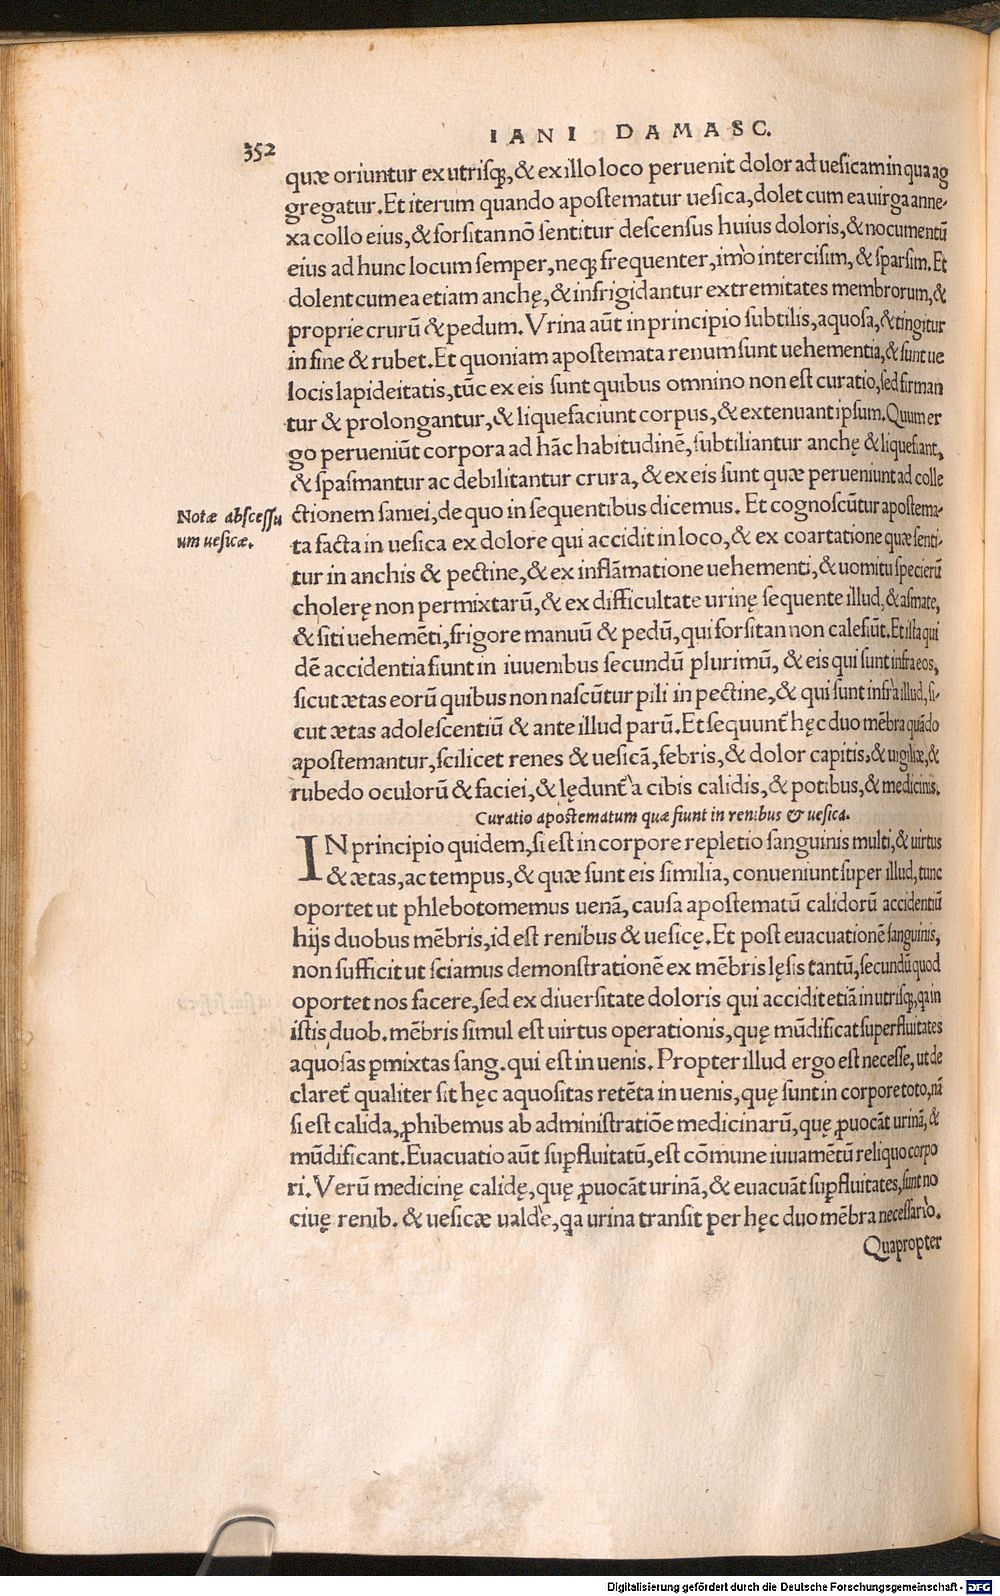 IANI DAMASC.
352
quæ oriuntur ex utrisq́;, & ex illo loco peruenit dolor ad uesicam in qua ag
gregatur. Et iterum quando apostematur uesica, dolet cum ea uirga anne-
xa collo eius, & forsitan nō sentitur descensus huius doloris, & nocumentū
eius ad hunc locum semper, neq; frequenter, imò intercisim, & sparsim. Et
dolent cum ea etiam anchę, & infrigidantur extremitates membrorum, &
proprie crurū & pedum. Vrina aūt in principio subtilis, aquosa, & tingitur
in fine & rubet. Et quoniam apostemata renum sunt uehementia, & sunt ue
locis lapideitatis, tūc ex eis sunt quibus omnino non est curatio, sed firman
tur & prolongantur, & liquefaciunt corpus, & extenuant ipsum. Quum er
go perueniūt corpora ad hāc habitudinē, subtiliantur anchę & liquefiant,
& spasmantur ac debilitantur crura, & ex eis sunt quæ perueniunt ad colle
ctionem saniei, de quo in sequentibus dicemus. Et cognoscūtur apostema-
Notæ abscessu
um uesicæ.
ta facta in uesica ex dolore qui accidit in loco, & ex coartatione quæ senti-
tur in anchis & pectine, & ex inflāmatione uehementi, & uomitu specierū
cholerę non permixtarū, & ex difficultate urinę sequente illud, & asmate,
& siti uehemēti, frigore manuū & pedū, qui forsitan non calefiūt. Et ista qui
dē accidentia fiunt in iuuenibus secundū plurimū, & eis qui sunt infra eos,
sicut ætas eorū quibus non nascūtur pili in pectine, & qui sunt infrà illud, si-
cut ætas adolescentiū & ante illud parū. Et sequunt̃ hęc duo mēbra quādo
apostemantur, scilicet renes & uesicā, febris, & dolor capitis, & uigiliæ, &
rubedo oculorū & faciei, & lędunt̃ à cibis calidis, & potibus, & medicinis.
Curatio apostematum quæ fiunt in renibus & uesica.
IN principio quidem, si est in corpore repletio sanguinis multi, & uirtus
& ætas, ac tempus, & quæ sunt eis similia, conueniunt super illud, tunc
oportet ut phlebotomemus uenā, causa apostematū calidorū accidentiū
hijs duobus mēbris, id est renibus & uesicę. Et post euacuationē sanguinis,
non sufficit ut sciamus demonstrationē ex mēbris lęsis tantū, secundū quod
oportet nos facere, sed ex diuersitate doloris qui accidit etiā in utrisq;, q̃a in
istis duob. mēbris simul est uirtus operationis, quę mūdificat superfluitates
aquosas ꝑmixtas sang. qui est in uenis. Propter illud ergo est necesse, ut de
claret̃ qualiter sit hęc aquositas retēta in uenis, quę sunt in corpore toto, nā
si est calida, ꝓhibemus ab administratiōe medicinarū, quę ꝓuocāt urinā, &
mūdificant. Euacuatio aūt suꝑfluitatū, est cōmune iuuamētū reliquo corpo
ri. Verū medicinę calidę, quę ꝓuocāt urinā, & euacuāt suꝑfluitates, sunt no
ciuę renib. & uesicæ ualdè, q̃a urina transit per hęc duo mēbra necessariò.
Quapropter
Digitalisierung gefördert durch die Deutsche Forschungsgemeinschaft - DFG